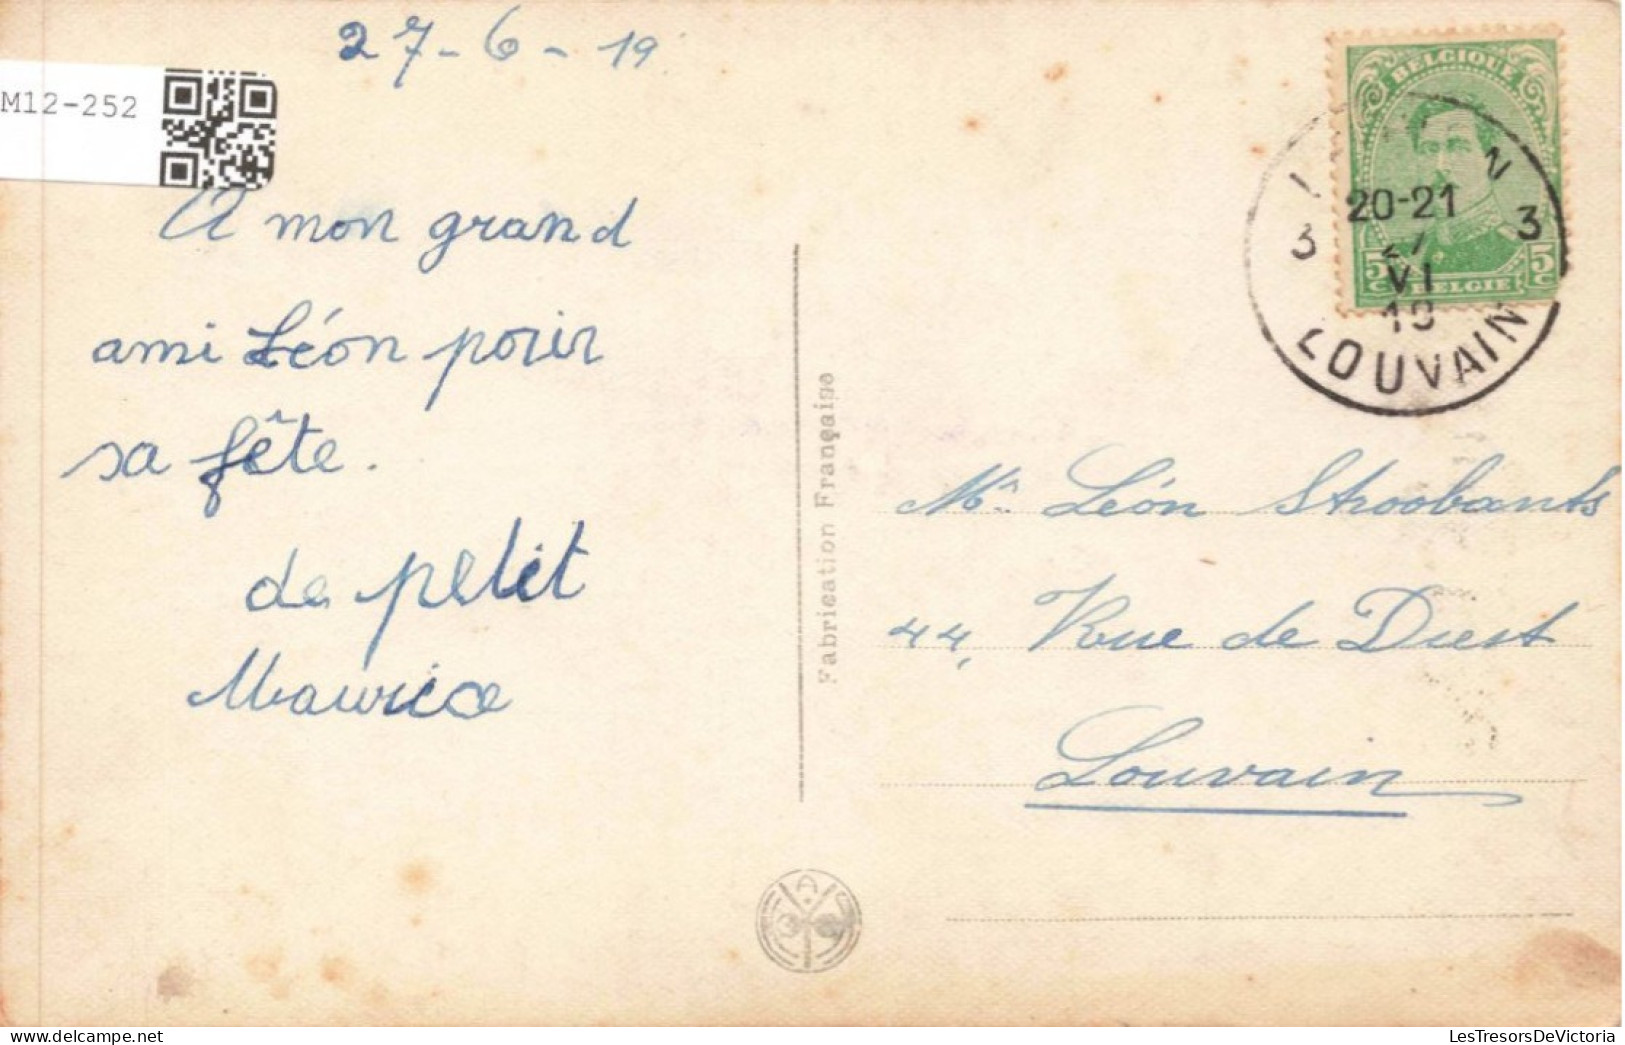 27-6-19
M12-252
A mon grand
ami Léon pour
sa fête.
de petit
Maurice
Fabrication Française
BELGIQUE
20-21
3 27 3
VI
19
5c 5c
BELGIE
LOUVAIN
Mr Léon Stroobants
44, Rue de Diest
Louvain
LesTresorsDeVictoria